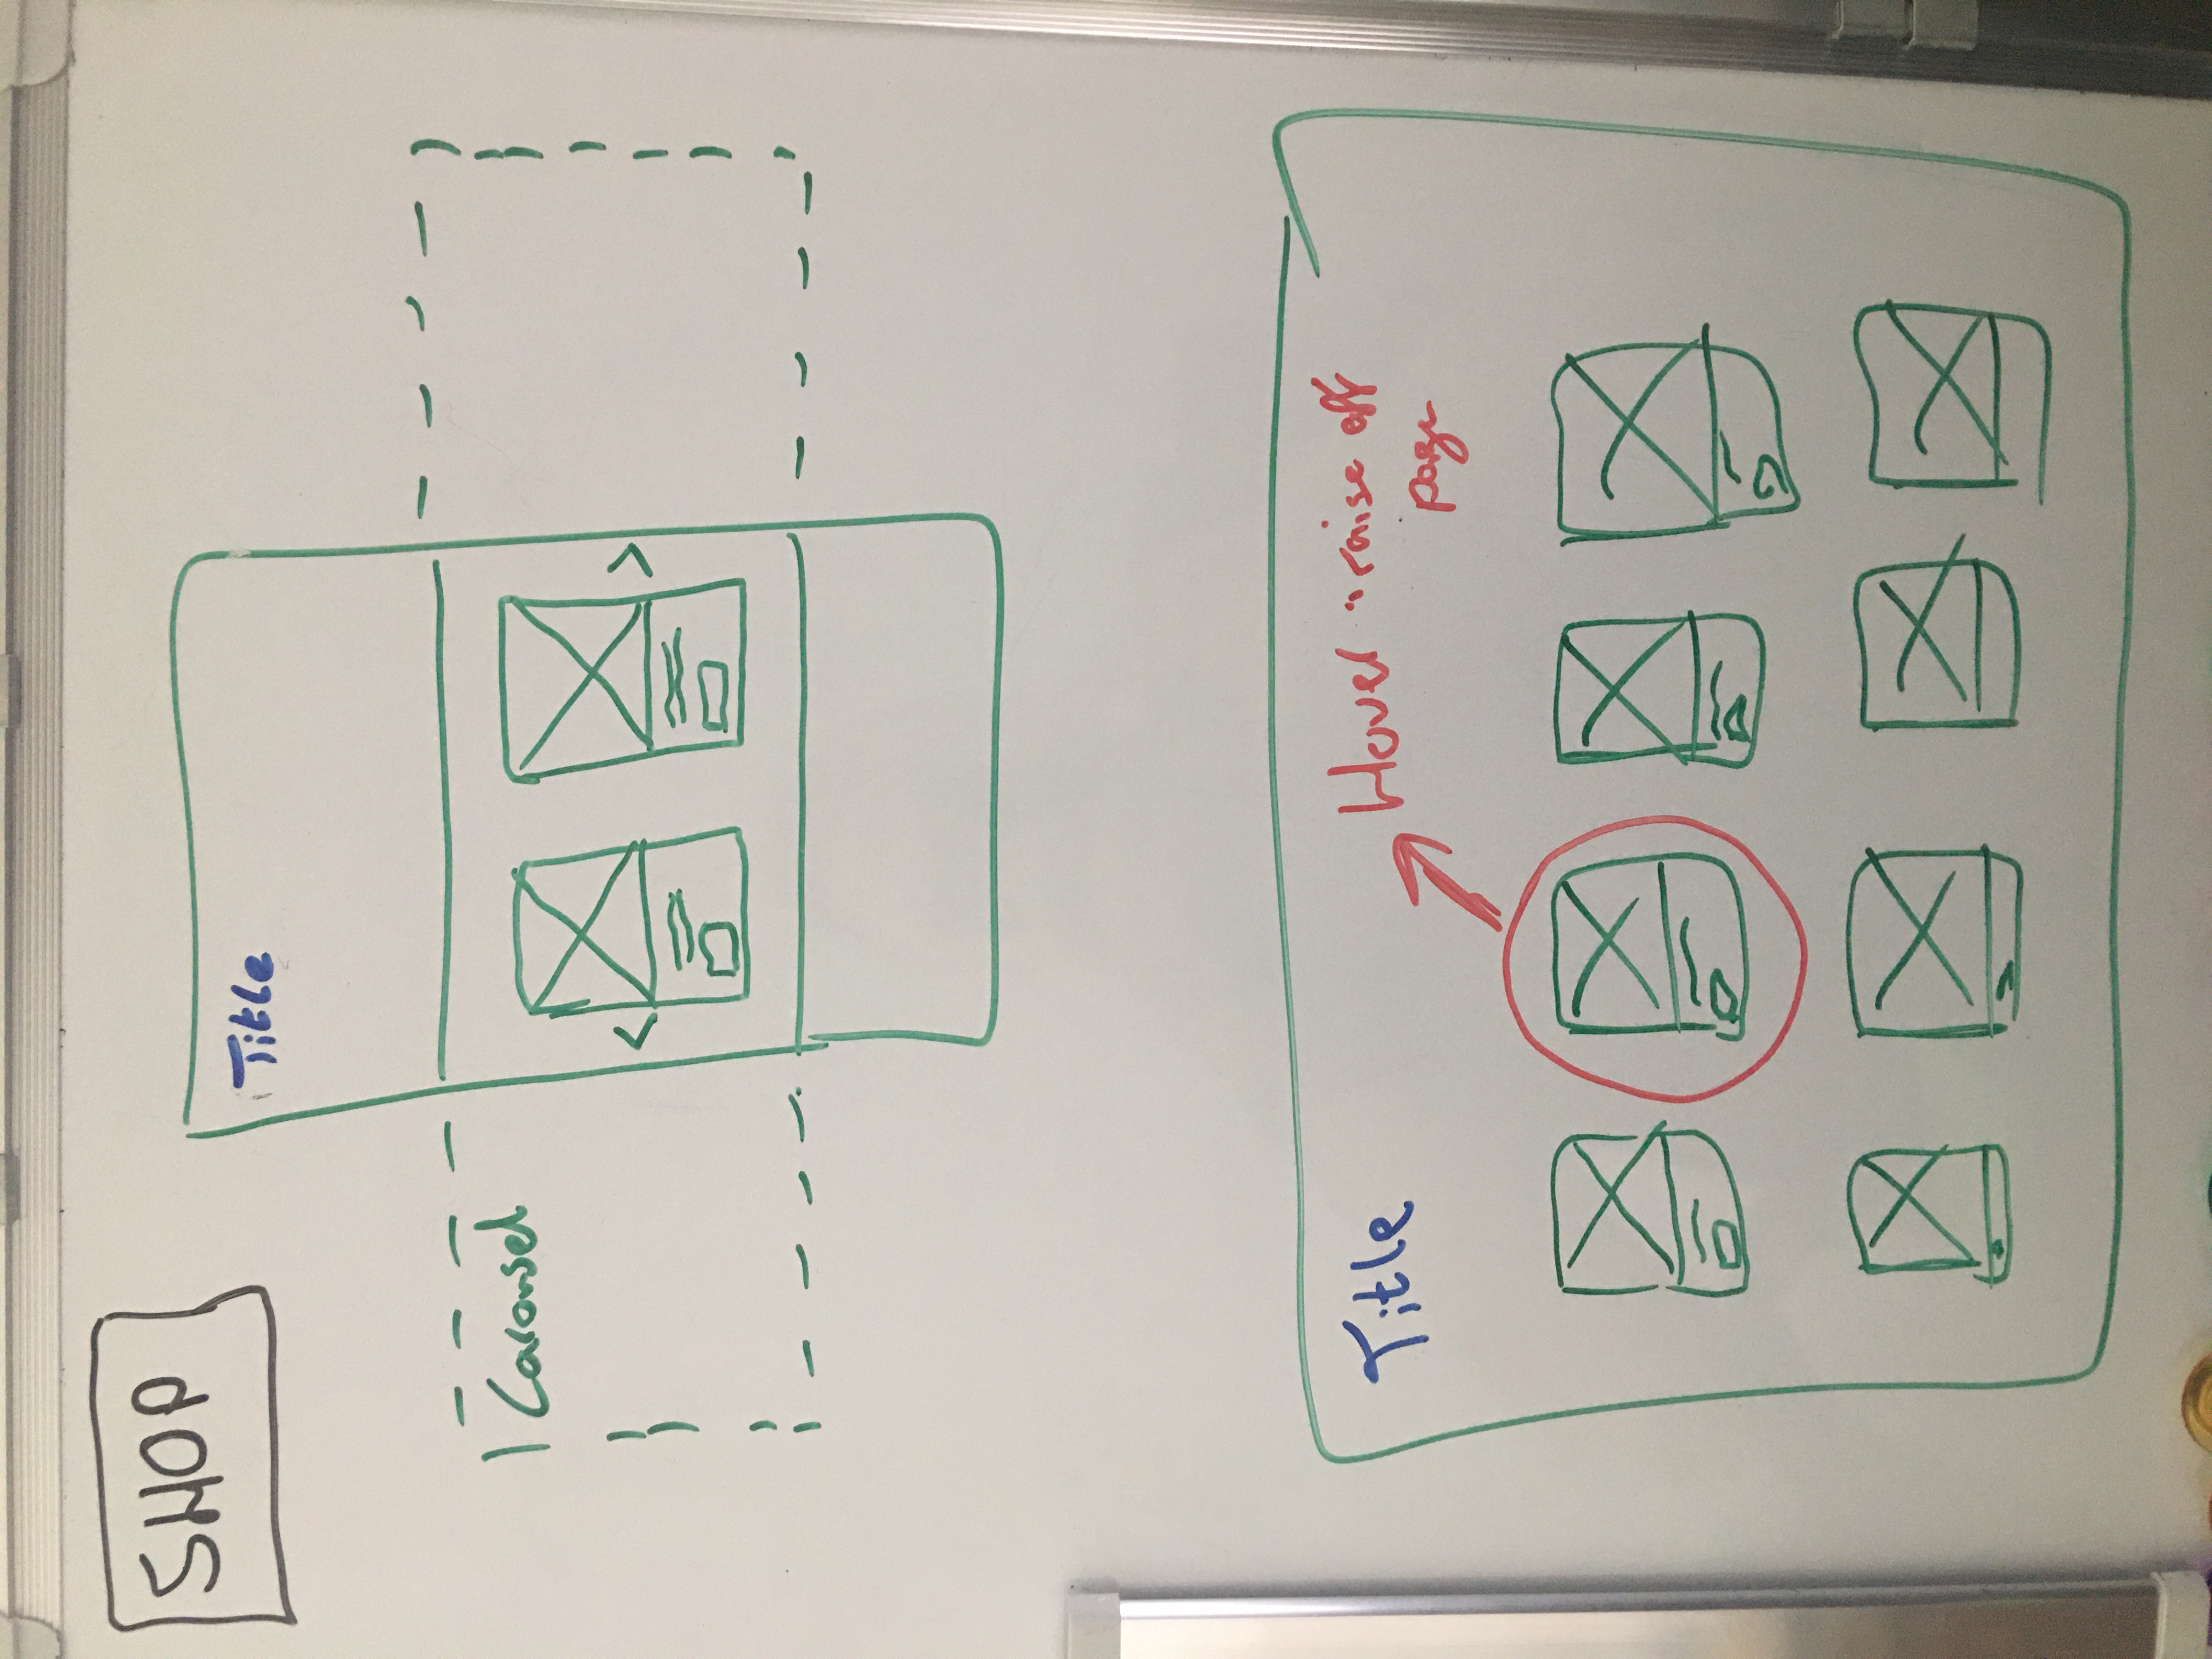 SHOP
Title
Carousel
< >
Title
Hover raise off
page